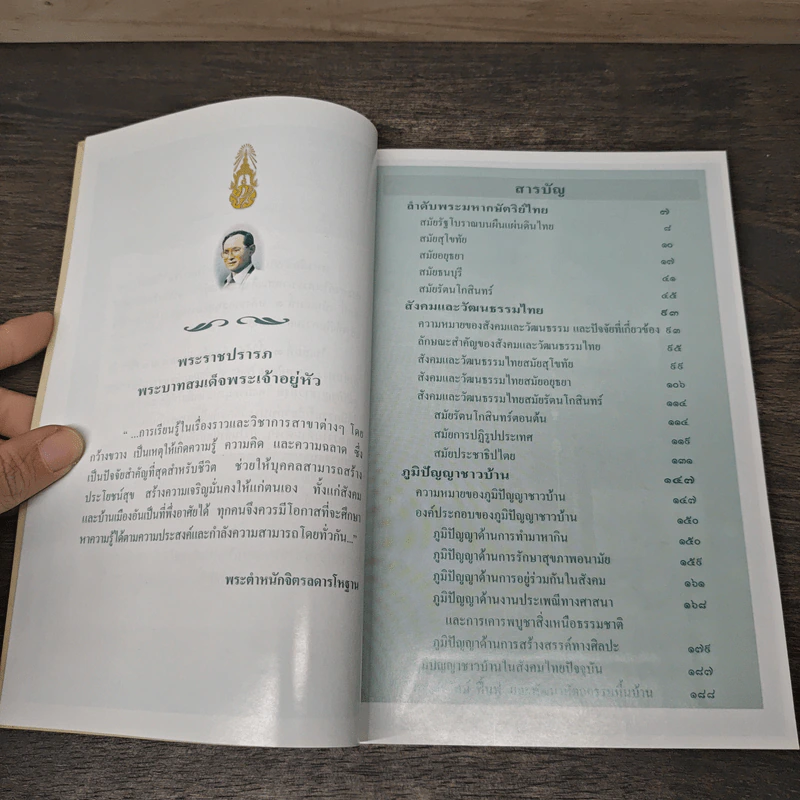 พระราชปรารภ
พระบาทสมเด็จพระเจ้าอยู่หัว
“ ...การเรียนรู้ในเรื่องราวและวิชาการสาขาต่างๆ โดย
กว้างขวาง เป็นเหตุให้เกิดความรู้ ความคิด และความฉลาด ซึ่ง
เป็นปัจจัยสำคัญที่สุดสำหรับชีวิต ช่วยให้บุคคลสามารถสร้าง
ประโยชน์สุข สร้างความเจริญมั่นคงให้แก่ตนเอง ทั้งแก่สังคม
และบ้านเมืองอันเป็นที่พึ่งอาศัยได้ ทุกคนจึงควรมีโอกาสที่จะศึกษา
หาความรู้ได้ตามความประสงค์และกำลังความสามารถโดยทั่วกัน...”
พระตำหนักจิตรลดารโหฐาน
สารบัญ
ลำดับพระมหากษัตริย์ไทย ๗
สมัยรัฐโบราณบนผืนแผ่นดินไทย ๘
สมัยสุโขทัย ๑๐
สมัยอยุธยา ๑๗
สมัยธนบุรี ๔๑
สมัยรัตนโกสินทร์ ๔๕
สังคมและวัฒนธรรมไทย ๙๓
ความหมายของสังคมและวัฒนธรรม และปัจจัยที่เกี่ยวข้อง ๙๓
ลักษณะสำคัญของสังคมและวัฒนธรรมไทย ๙๕
สังคมและวัฒนธรรมไทยสมัยสุโขทัย ๙๙
สังคมและวัฒนธรรมไทยสมัยอยุธยา ๑๐๖
สังคมและวัฒนธรรมไทยสมัยรัตนโกสินทร์ ๑๑๔
สมัยรัตนโกสินทร์ตอนต้น ๑๑๔
สมัยการปฏิรูปประเทศ ๑๑๙
สมัยประชาธิปไตย ๑๓๑
ภูมิปัญญาชาวบ้าน ๑๔๗
ความหมายของภูมิปัญญาชาวบ้าน ๑๔๗
องค์ประกอบของภูมิปัญญาชาวบ้าน ๑๕๐
ภูมิปัญญาด้านการทำมาหากิน ๑๕๐
ภูมิปัญญาด้านการรักษาสุขภาพอนามัย ๑๕๙
ภูมิปัญญาด้านการอยู่ร่วมกันในสังคม ๑๖๑
ภูมิปัญญาด้านงานประเพณีทางศาสนา ๑๖๘
และการเคารพบูชาสิ่งเหนือธรรมชาติ
ภูมิปัญญาด้านการสร้างสรรค์ทางศิลปะ ๑๗๙
ภูมิปัญญาชาวบ้านในสังคมไทยปัจจุบัน ๑๘๗
๑๘๘